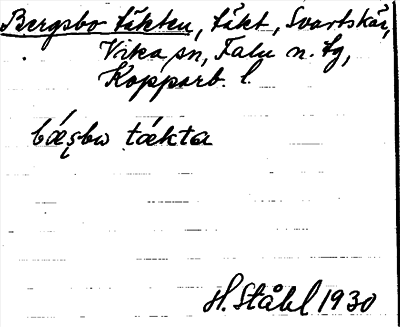 Bergsbo täkten, täkt, Svartskär,
Vika sn, Falu n. tg,
Kopparb. l.
bǽʂbω tǽkta
H. Ståhl 1930